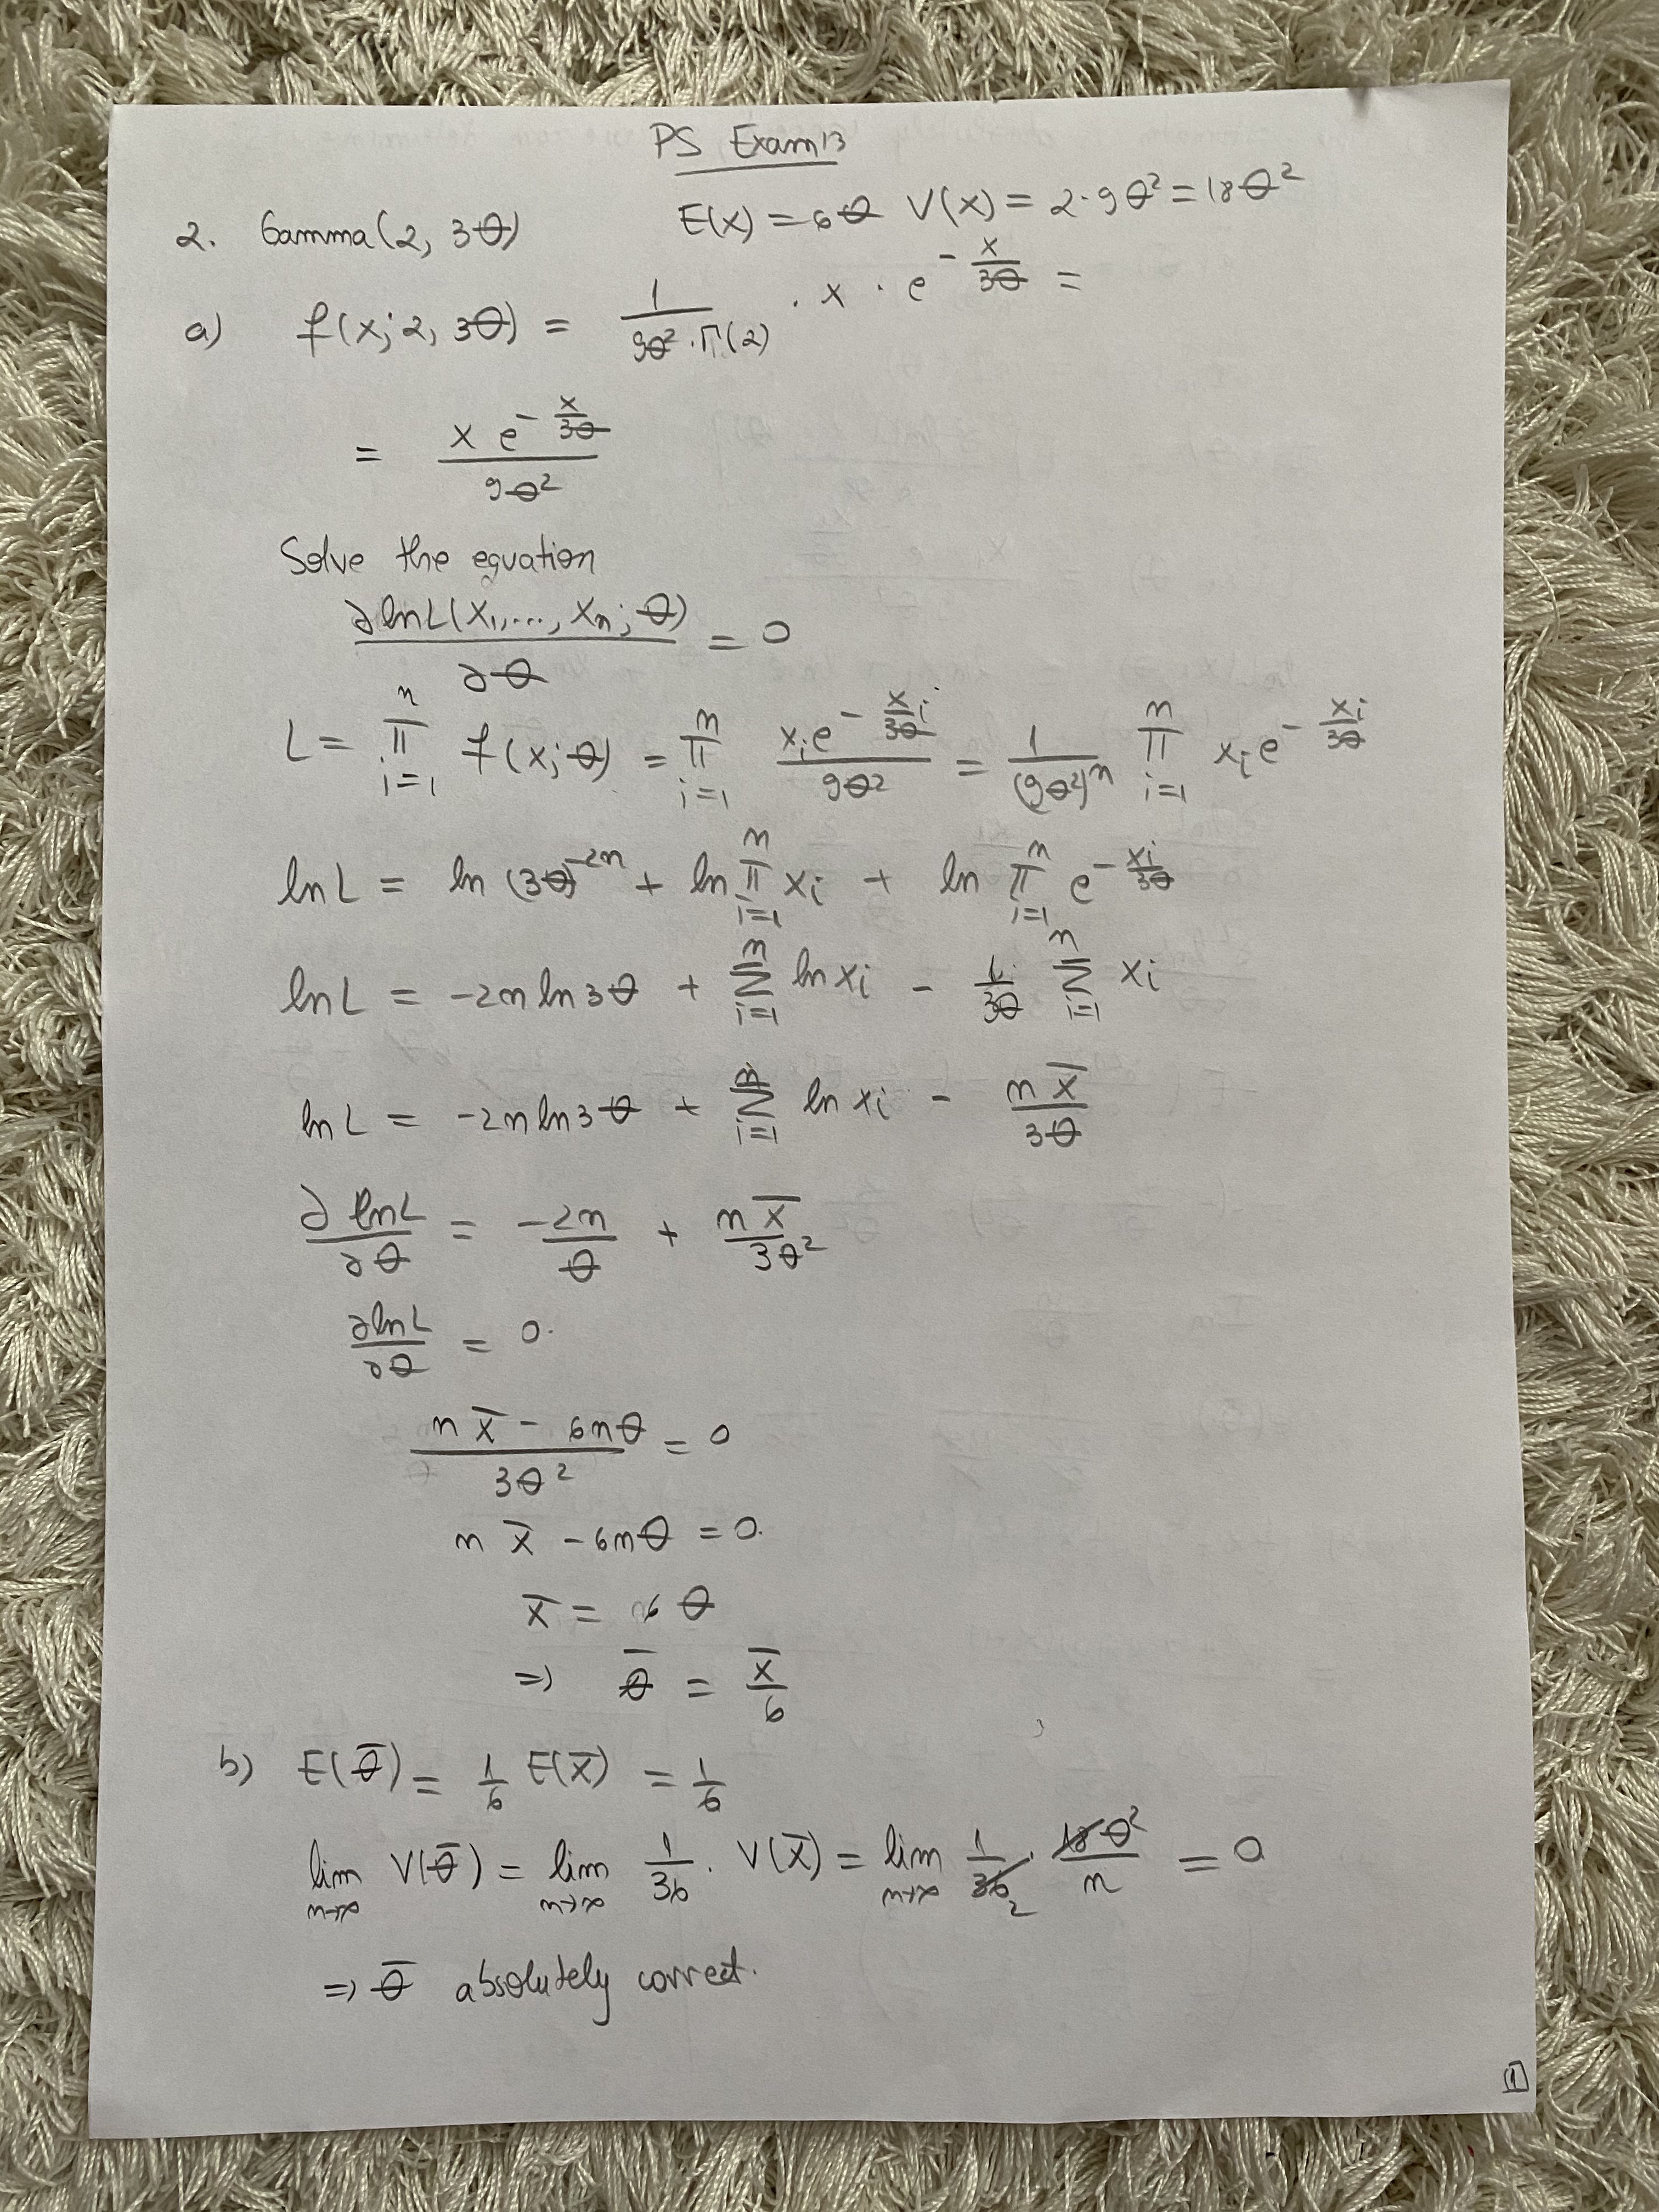 PS Exam 13
2. Gamma(2, 3θ) E(X) = 6θ V(X) = 2·9θ² = 18θ²
a) f(x; 2, 3θ) = 1/(9θ²·Γ(2)) · x · e^(-x/3θ) =
= x e^(-x/3θ) / 9θ²
Solve the equation
∂lnL(X₁,..., Xₙ; θ)/∂θ = 0
L = ∏_{i=1}^{n} f(x; θ) = ∏_{i=1}^{n} xᵢe^(-xᵢ/3θ) / 9θ² = 1/(9θ²)ⁿ ∏_{i=1}^{n} xᵢe^(-xᵢ/3θ)
lnL = ln (3θ)^(-2n) + ln ∏_{i=1}^{n} xᵢ + ln ∏_{i=1}^{n} e^(-xᵢ/3θ)
lnL = -2n ln3θ + ∑_{i=1}^{n} ln xᵢ - 1/3θ ∑_{i=1}^{n} xᵢ
lnL = -2n ln3θ + ∑_{i=1}^{n} ln xᵢ - n x̄/3θ
∂lnL/∂θ = -2n/θ + n x̄/3θ²
∂lnL/∂θ = 0.
(n x̄ - 6nθ)/3θ² = 0
n x̄ - 6nθ = 0.
x̄ = 6θ
=> θ̄ = x̄/6
b) E(θ̄) = 1/6 E(X̄) = 1/6
lim_{n→∞} V(θ̄) = lim_{n→∞} 1/36 · V(X̄) = lim_{n→∞} 1/36 2 · 18θ²/n = 0
=> θ̄ absolutely correct.
1